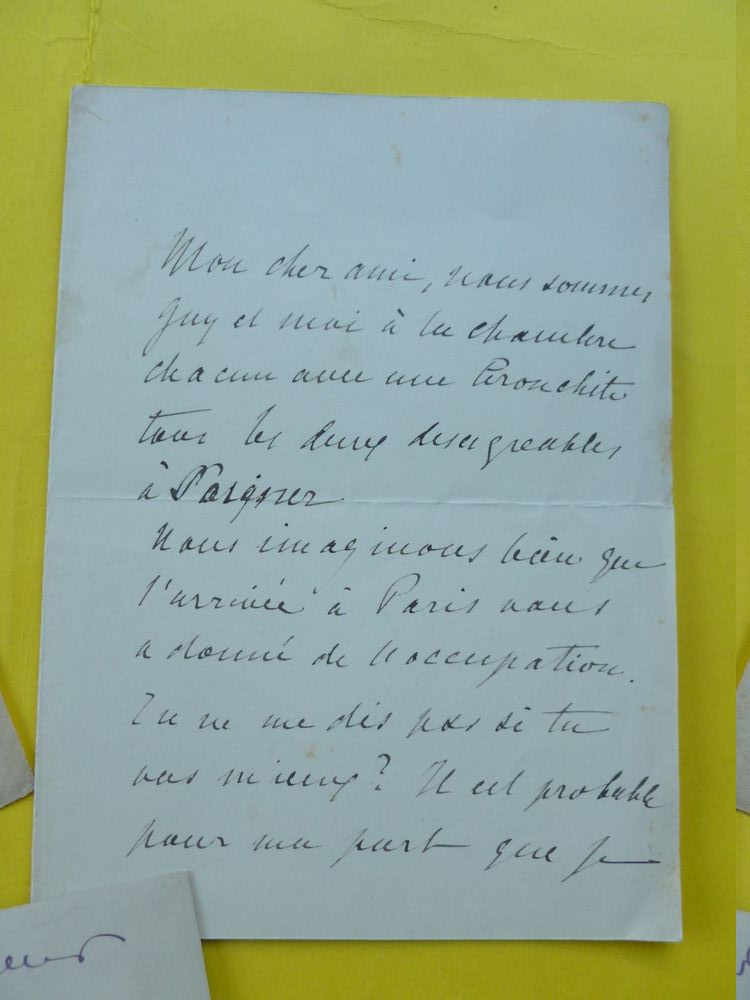 Mon cher ami, nous sommes
Guy et moi à la chambre
chacun avec une bronchite
tous les deux desagreables
à soigner
Nous imaginons bien que
l'arrivée à Paris vous
a donné de l'occupation.
Tu ne me dis pas si tu
vas mieux? Il est probable
pour ma part que je